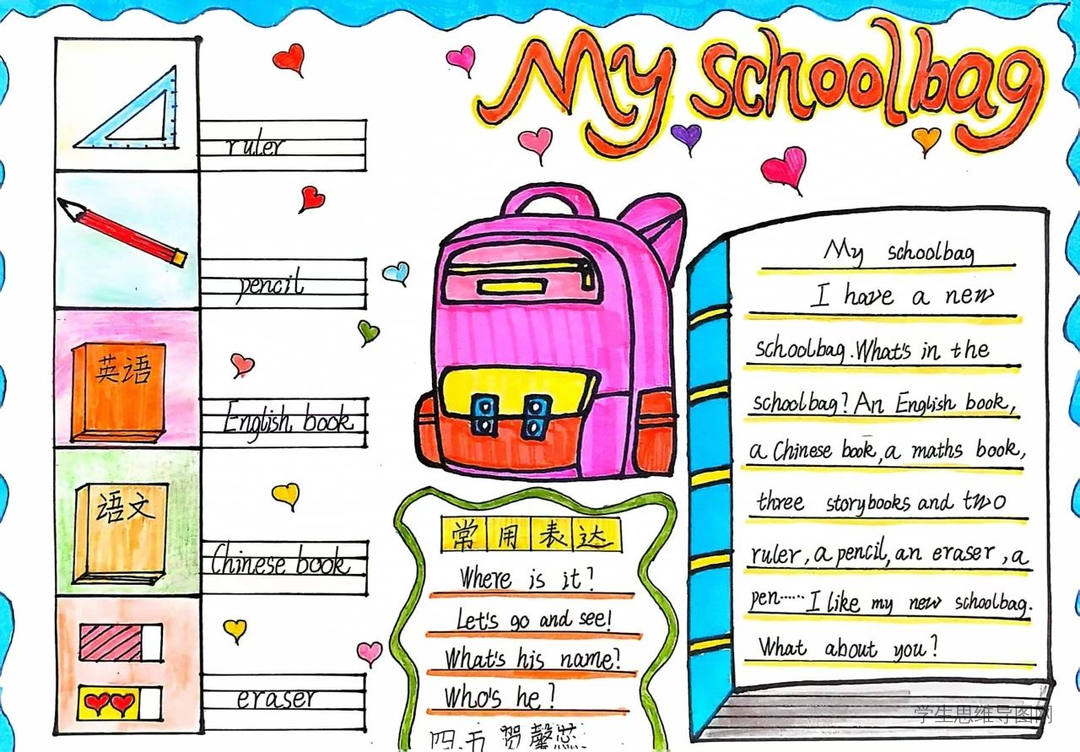 My schoolbag
ruler
pencil
英语
English book
语文
Chinese book
eraser
常用表达
Where is it?
Let's go and see!
What's his name?
Who's he?
四.五 贺馨
My schoolbag
I have a new
schoolbag.What's in the
schoolbag? An English book,
a Chinese book,a maths book,
three storybooks and two
ruler,a pencil,an eraser,a
pen……I like my new schoolbag.
What about you?
学生思维导图网